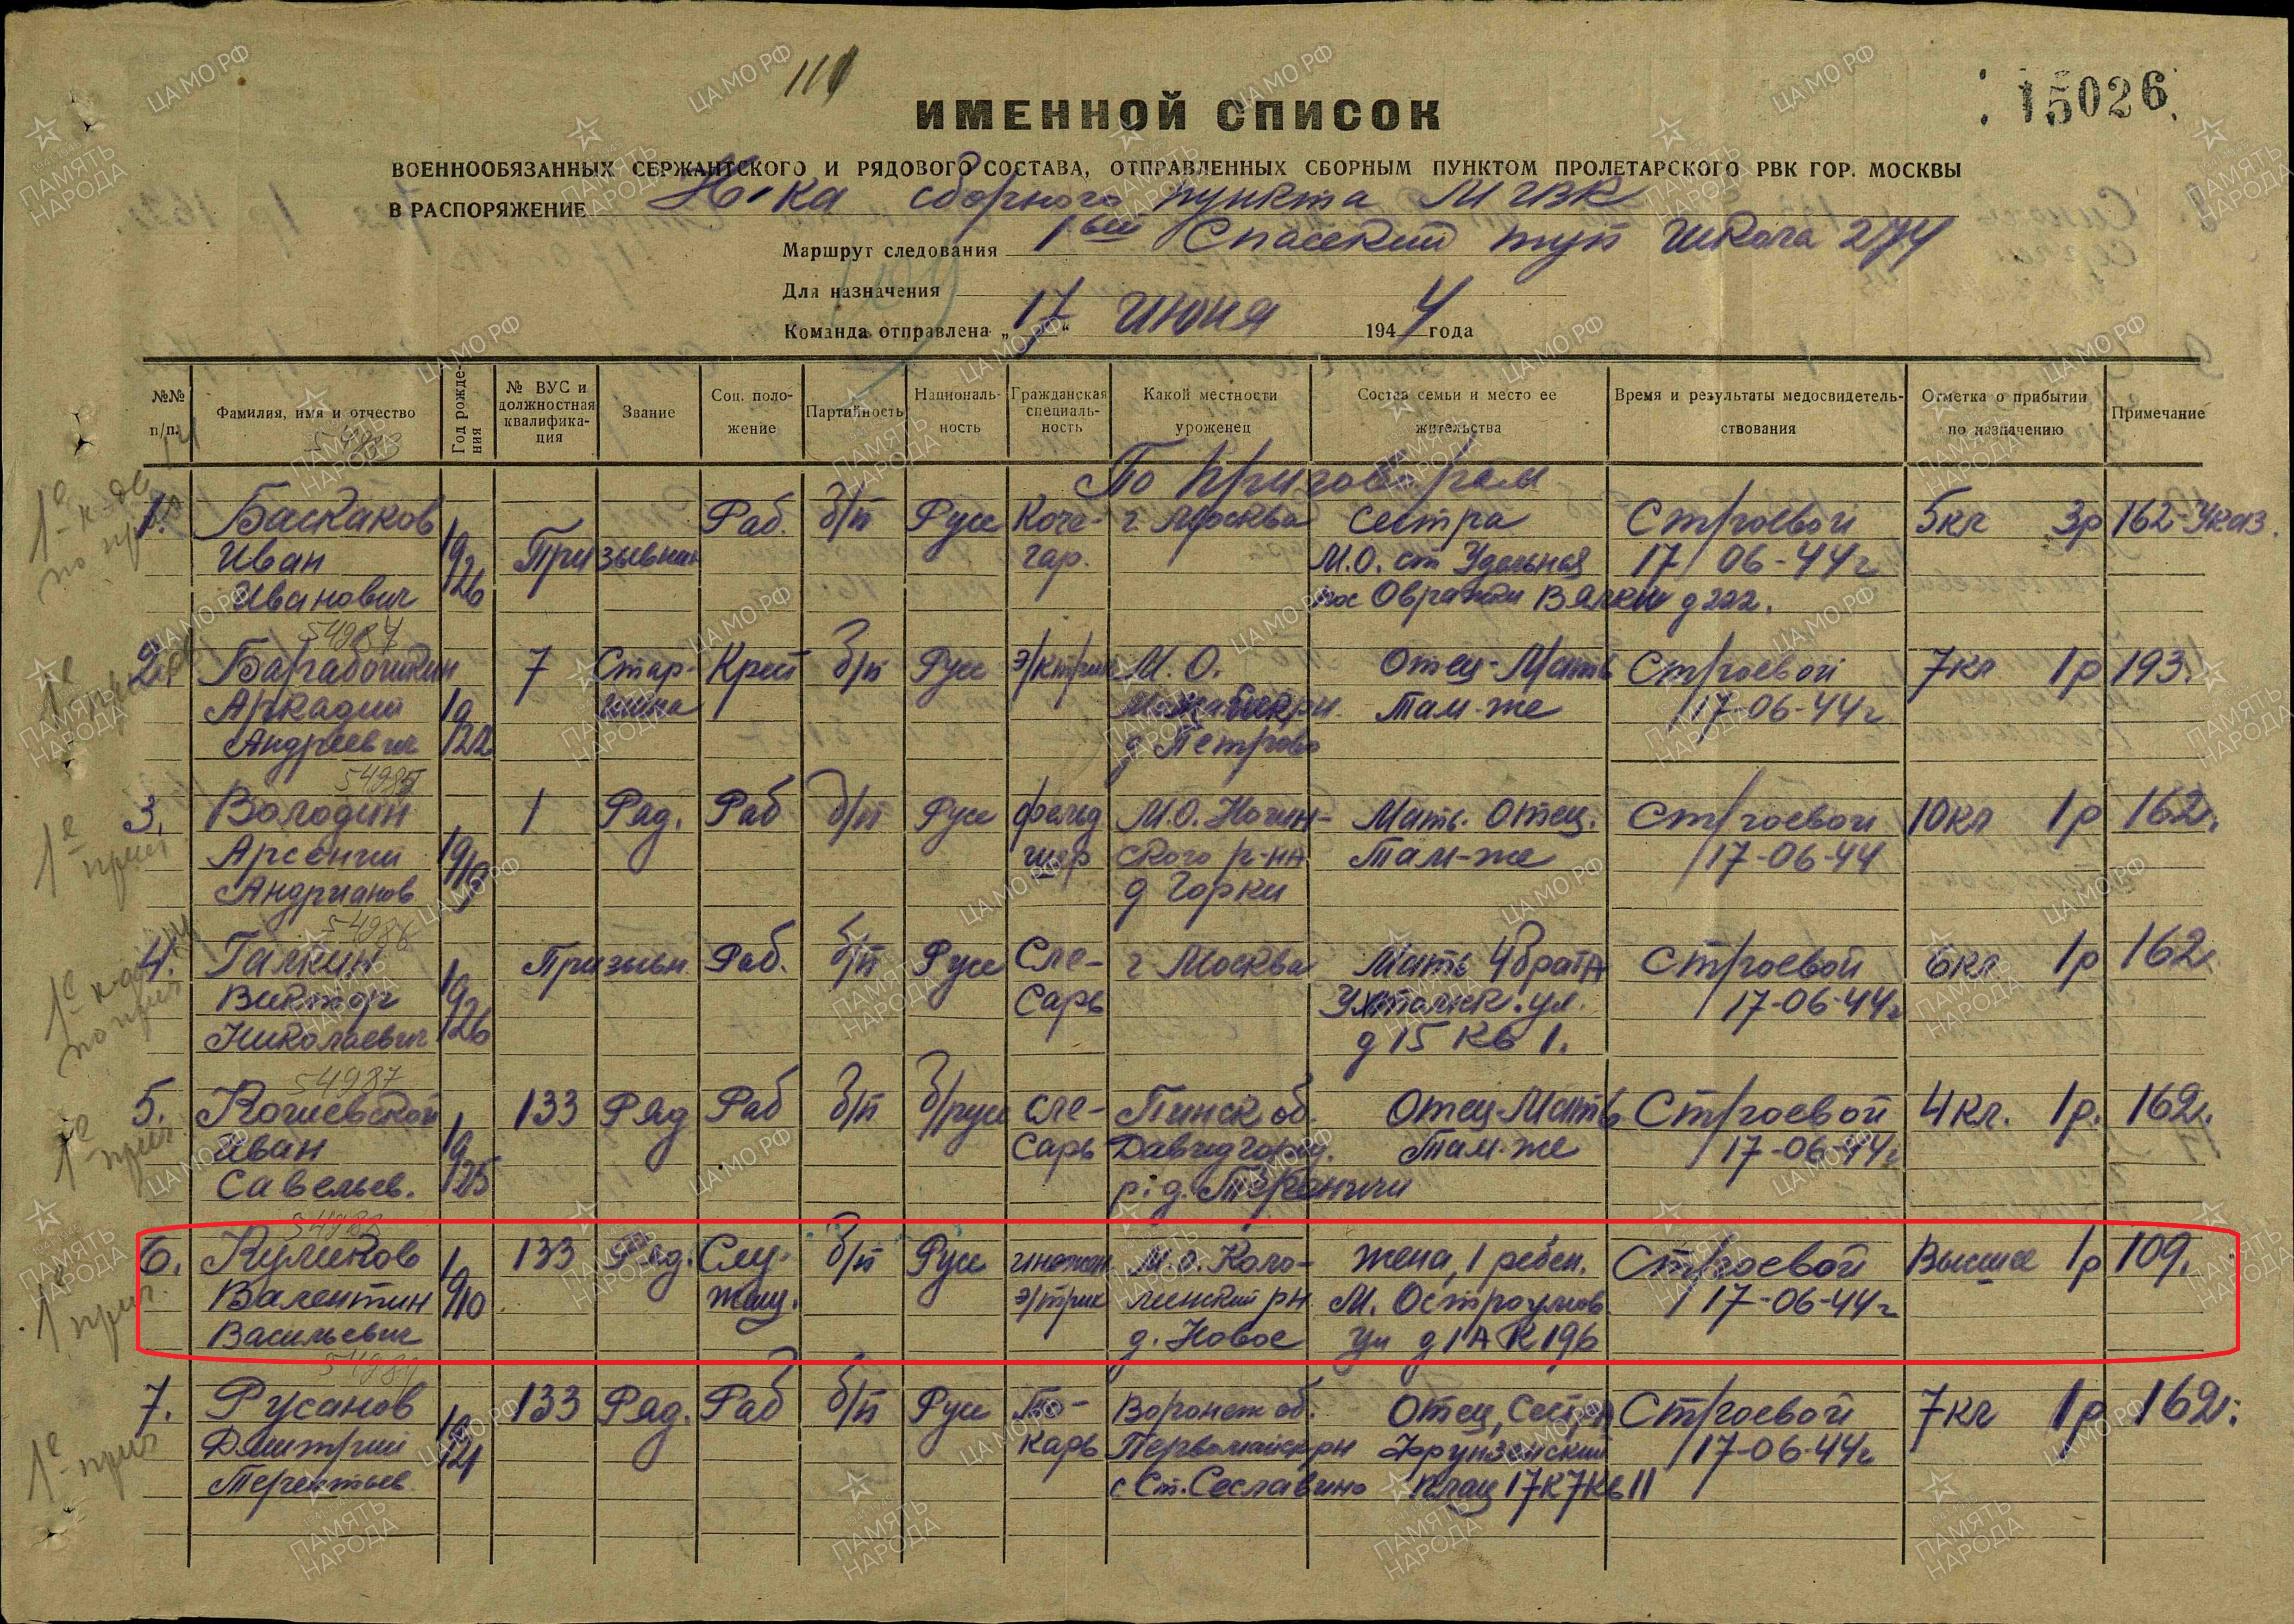 111
15026
ИМЕННОЙ СПИСОК
ВОЕННООБЯЗАННЫХ СЕРЖАНТСКОГО И РЯДОВОГО СОСТАВА, ОТПРАВЛЕННЫХ СБОРНЫМ ПУНКТОМ ПРОЛЕТАРСКОГО РВК ГОР. МОСКВЫ
В РАСПОРЯЖЕНИЕ Н-ка сборного пункта МГВК
Маршрут следования 1ый Спасский туп Школа 274
Для назначения
Команда отправлена „17“ июня 1944 года
№№ п/п. Фамилия, имя и отчество Год рождения № ВУС и должностная квалификация Звание Соц. положение Партийность Националь-ность Гражданская специаль-ность Какой местности уроженец Состав семьи и место ее жительства Время и результаты медосвидетель-ствования Отметка о прибытии по назначению Примечание
По приговорам
1. Баскаков Раб. б/п Русс Коче- г Москва Сестра Строевой 5кл 3р 162-Указ.
Иван 19 Призывник гар. М.О. ст Удельная 17/06-44г
Иванович 26 пос Овражки Вялки д 222.
54984
2. 7 Стар- Крест б/п Русс э/ктрик М.О. Отец-Мать Строевой 7кл 1р 193.
Аркадий 19 шина Там-же 17-06-44г
Андреевич 22 д Петрово
54985
3. Володин 1 Ряд. Раб б/п Русс фельд М.О. Ногин- Мать. Отец. Строевой 10кл 1р 162г.
Арсений 19 шер ского р-на Там-же 17-06-44
Андрианов 19 д Горки
54986
4. Галкин Призывн. Раб. б/п Русс Сле- г Москва Мать 4 брата Строевой 6кл 1р 162г.
Виктор 19 Сарь Ухтомск. ул. 17-06-44г
Николаевич 26 д 15 Кв 1.
54987
5. 133 Ряд Раб б/п б/русс сле- Пинск об. Отец-Мать Строевой 4кл. 1р. 162г.
Иван 19 Сарь Давидгород. Там-же 17-06-44г
Савельев. 25
54988
6. Куликов 133 Ряд. Слу- б/п Русс инжен М.О. Коло- Жена, 1 ребен. Строевой Высшее 1р 109.
Валентин 1910 жащ. э/трик менский рн М. Остроумов. 17-06-44г
Васильевич д. Новое ул д 1А К 196
54989
7. Русанов 133 Ряд. Раб б/п Русс То- Воронеж об. Отец, Сестра Строевой 7кл 1р 162г.
Дмитрий 19 карь Первомайск рн Фрунзенский 17-06-44г
Терентьев 21 с Ст. Сеславино плац 17 К 7 Кв 11